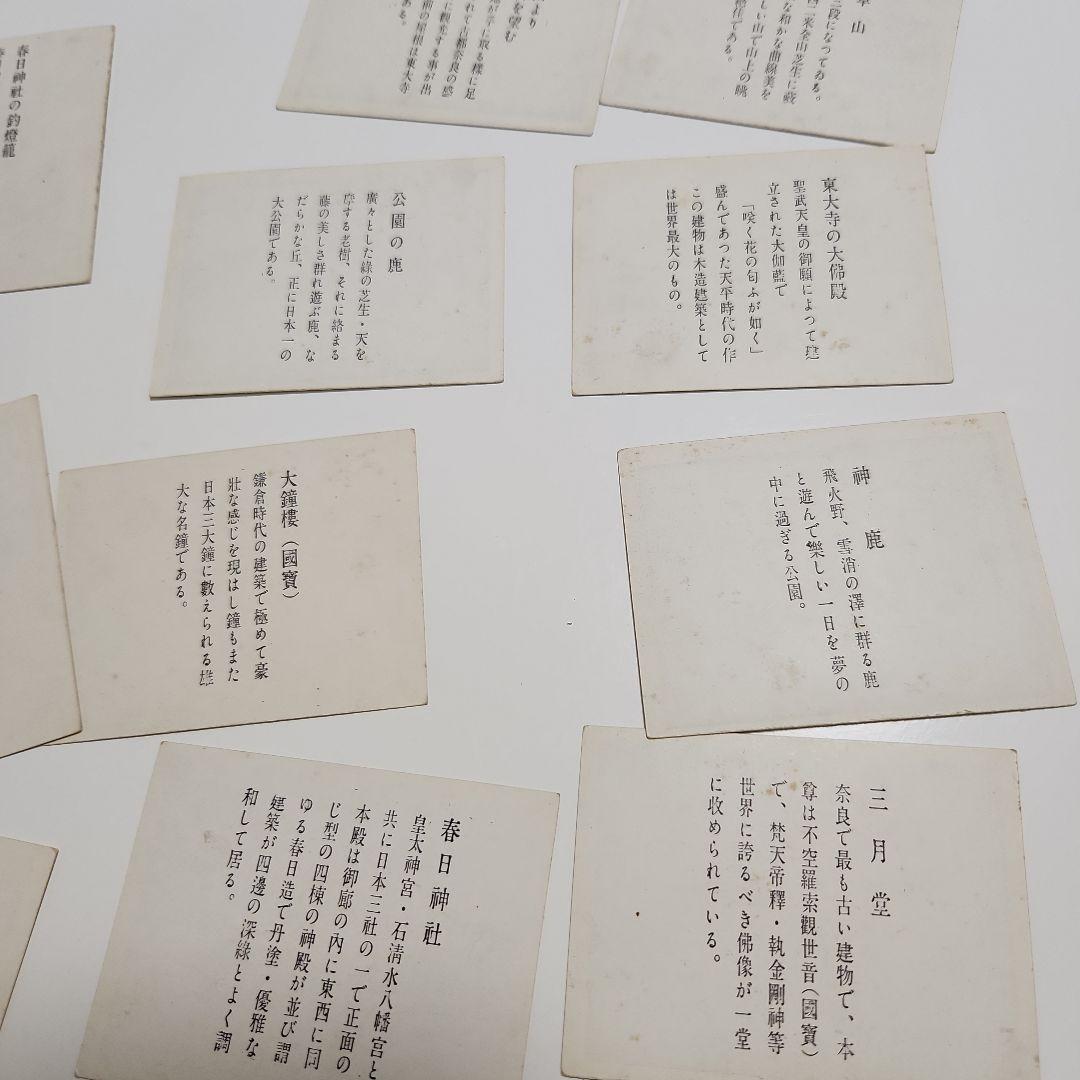 春日神社の釣燈籠
より
を望む
に取る様に足
れて古都奈良の盛
に観光する事が出
前の屋根は東大寺
ある。
草山
三段になつてゐる。
四二米全山芝生に蔽
な和かな曲線美を
しい山で山上の眺
絶佳である。
公園の鹿
廣々とした綠の芝生・天を
摩する老樹、それに絡まる
藤の美しさ群れ遊ぶ鹿、な
だらかな丘、正に日本一の
大公園である。
東大寺の大佛殿
聖武天皇の御願によつて建
立された大伽藍で
「咲く花の匂ふが如く」
盛んであつた天平時代の作
この建物は木造建築として
は世界最大のもの。
大鐘樓(國寶)
鎌倉時代の建築で極めて豪
壯な感じを現はし鐘もまた
日本三大鐘に數えられる雄
大な名鐘である。
神鹿
飛火野、雪消の澤に群る鹿
と遊んで樂しい一日を夢の
中に過ぎる公園。
春日神社
皇太神宮・石清水八幡宮と
共に日本三社の一で正面の
本殿は御廊の內に東西に同
じ型の四棟の神殿が並び謂
ゆる春日造で丹塗・優雅な
建築が四邊の深綠とよく調
和して居る。
三月堂
奈良で最も古い建物で、本
尊は不空羅索觀世音(國寶)
で、梵天帝釋・執金剛神等
世界に誇るべき佛像が一堂
に收められている。